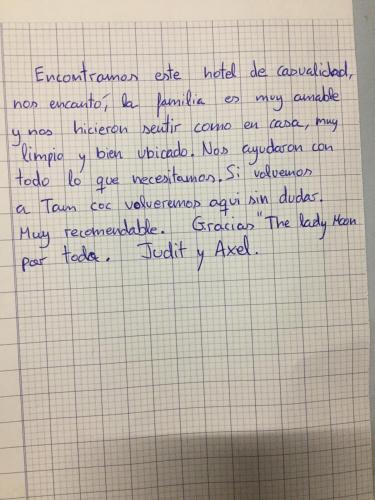 Encontramos este hotel de casualidad,
nos encantó, la familia es muy amable
y nos hicieron sentir como en casa, muy
limpio y bien ubicado. Nos ayudaron con
todo lo que necesitamos. Si volvemos
a Tam coc volveremos aqui sin dudar.
Muy recomendable. Gracias "The lady Moon
por todo. Judit y Axel.